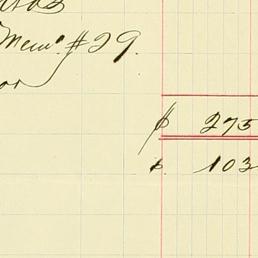 Mem° #29.
or
$ 275
$ 103